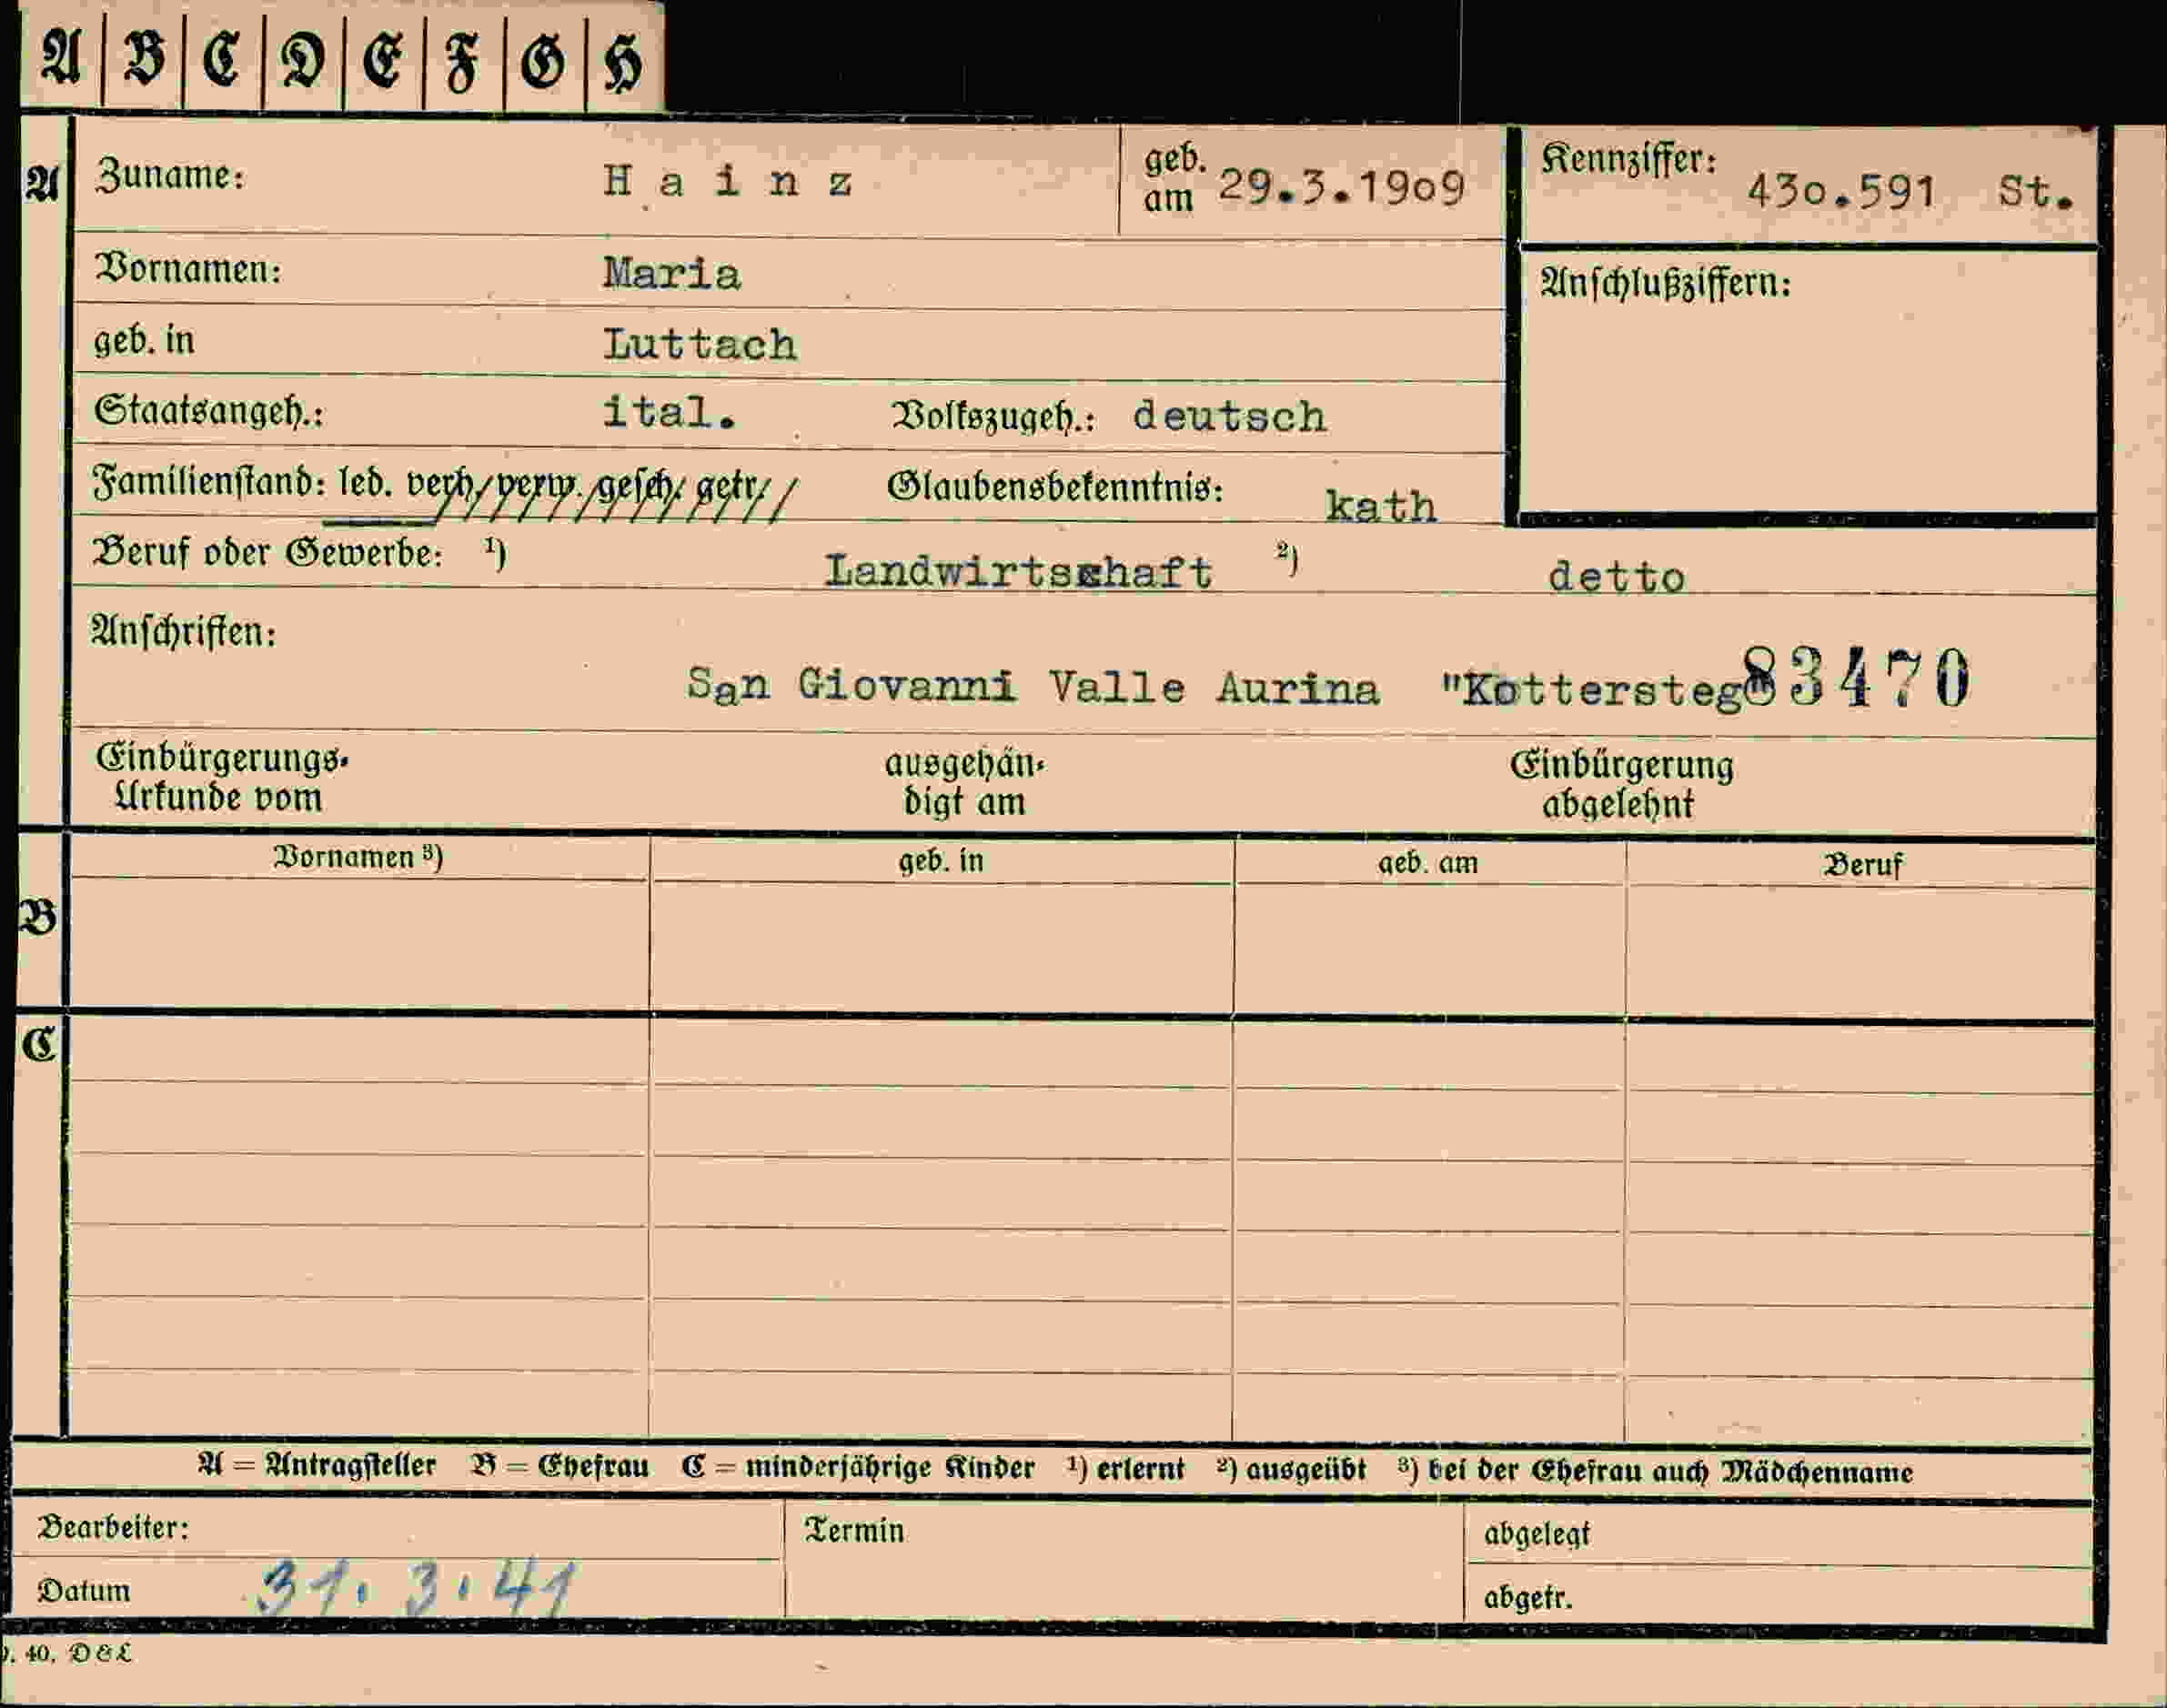 A B C D E F G H
A Zuname: Hainz geb. am 29.3.1909 Kennziffer: 430.591 St.
Vornamen: Maria Anschlußziffern:
geb. in Luttach
Staatsangeh.: ital. Volkszugeh.: deutsch
Familienstand: led. verh. verw. gesch. getr. Glaubensbekenntnis: kath
Beruf oder Gewerbe: ¹) Landwirtschaft ²) detto
Anschriften:
San Giovanni Valle Aurina "Kottersteg" 83470
Einbürgerungs- ausgehän- Einbürgerung
Urkunde vom digt am abgelehnt
Vornamen ³) geb. in geb. am Beruf
B
C
A = Antragsteller B = Ehefrau C = minderjährige Kinder ¹) erlernt ²) ausgeübt ³) bei der Ehefrau auch Mädchenname
Bearbeiter: Termin abgelegt
Datum 31.3.41 abgetr.
40, D&L